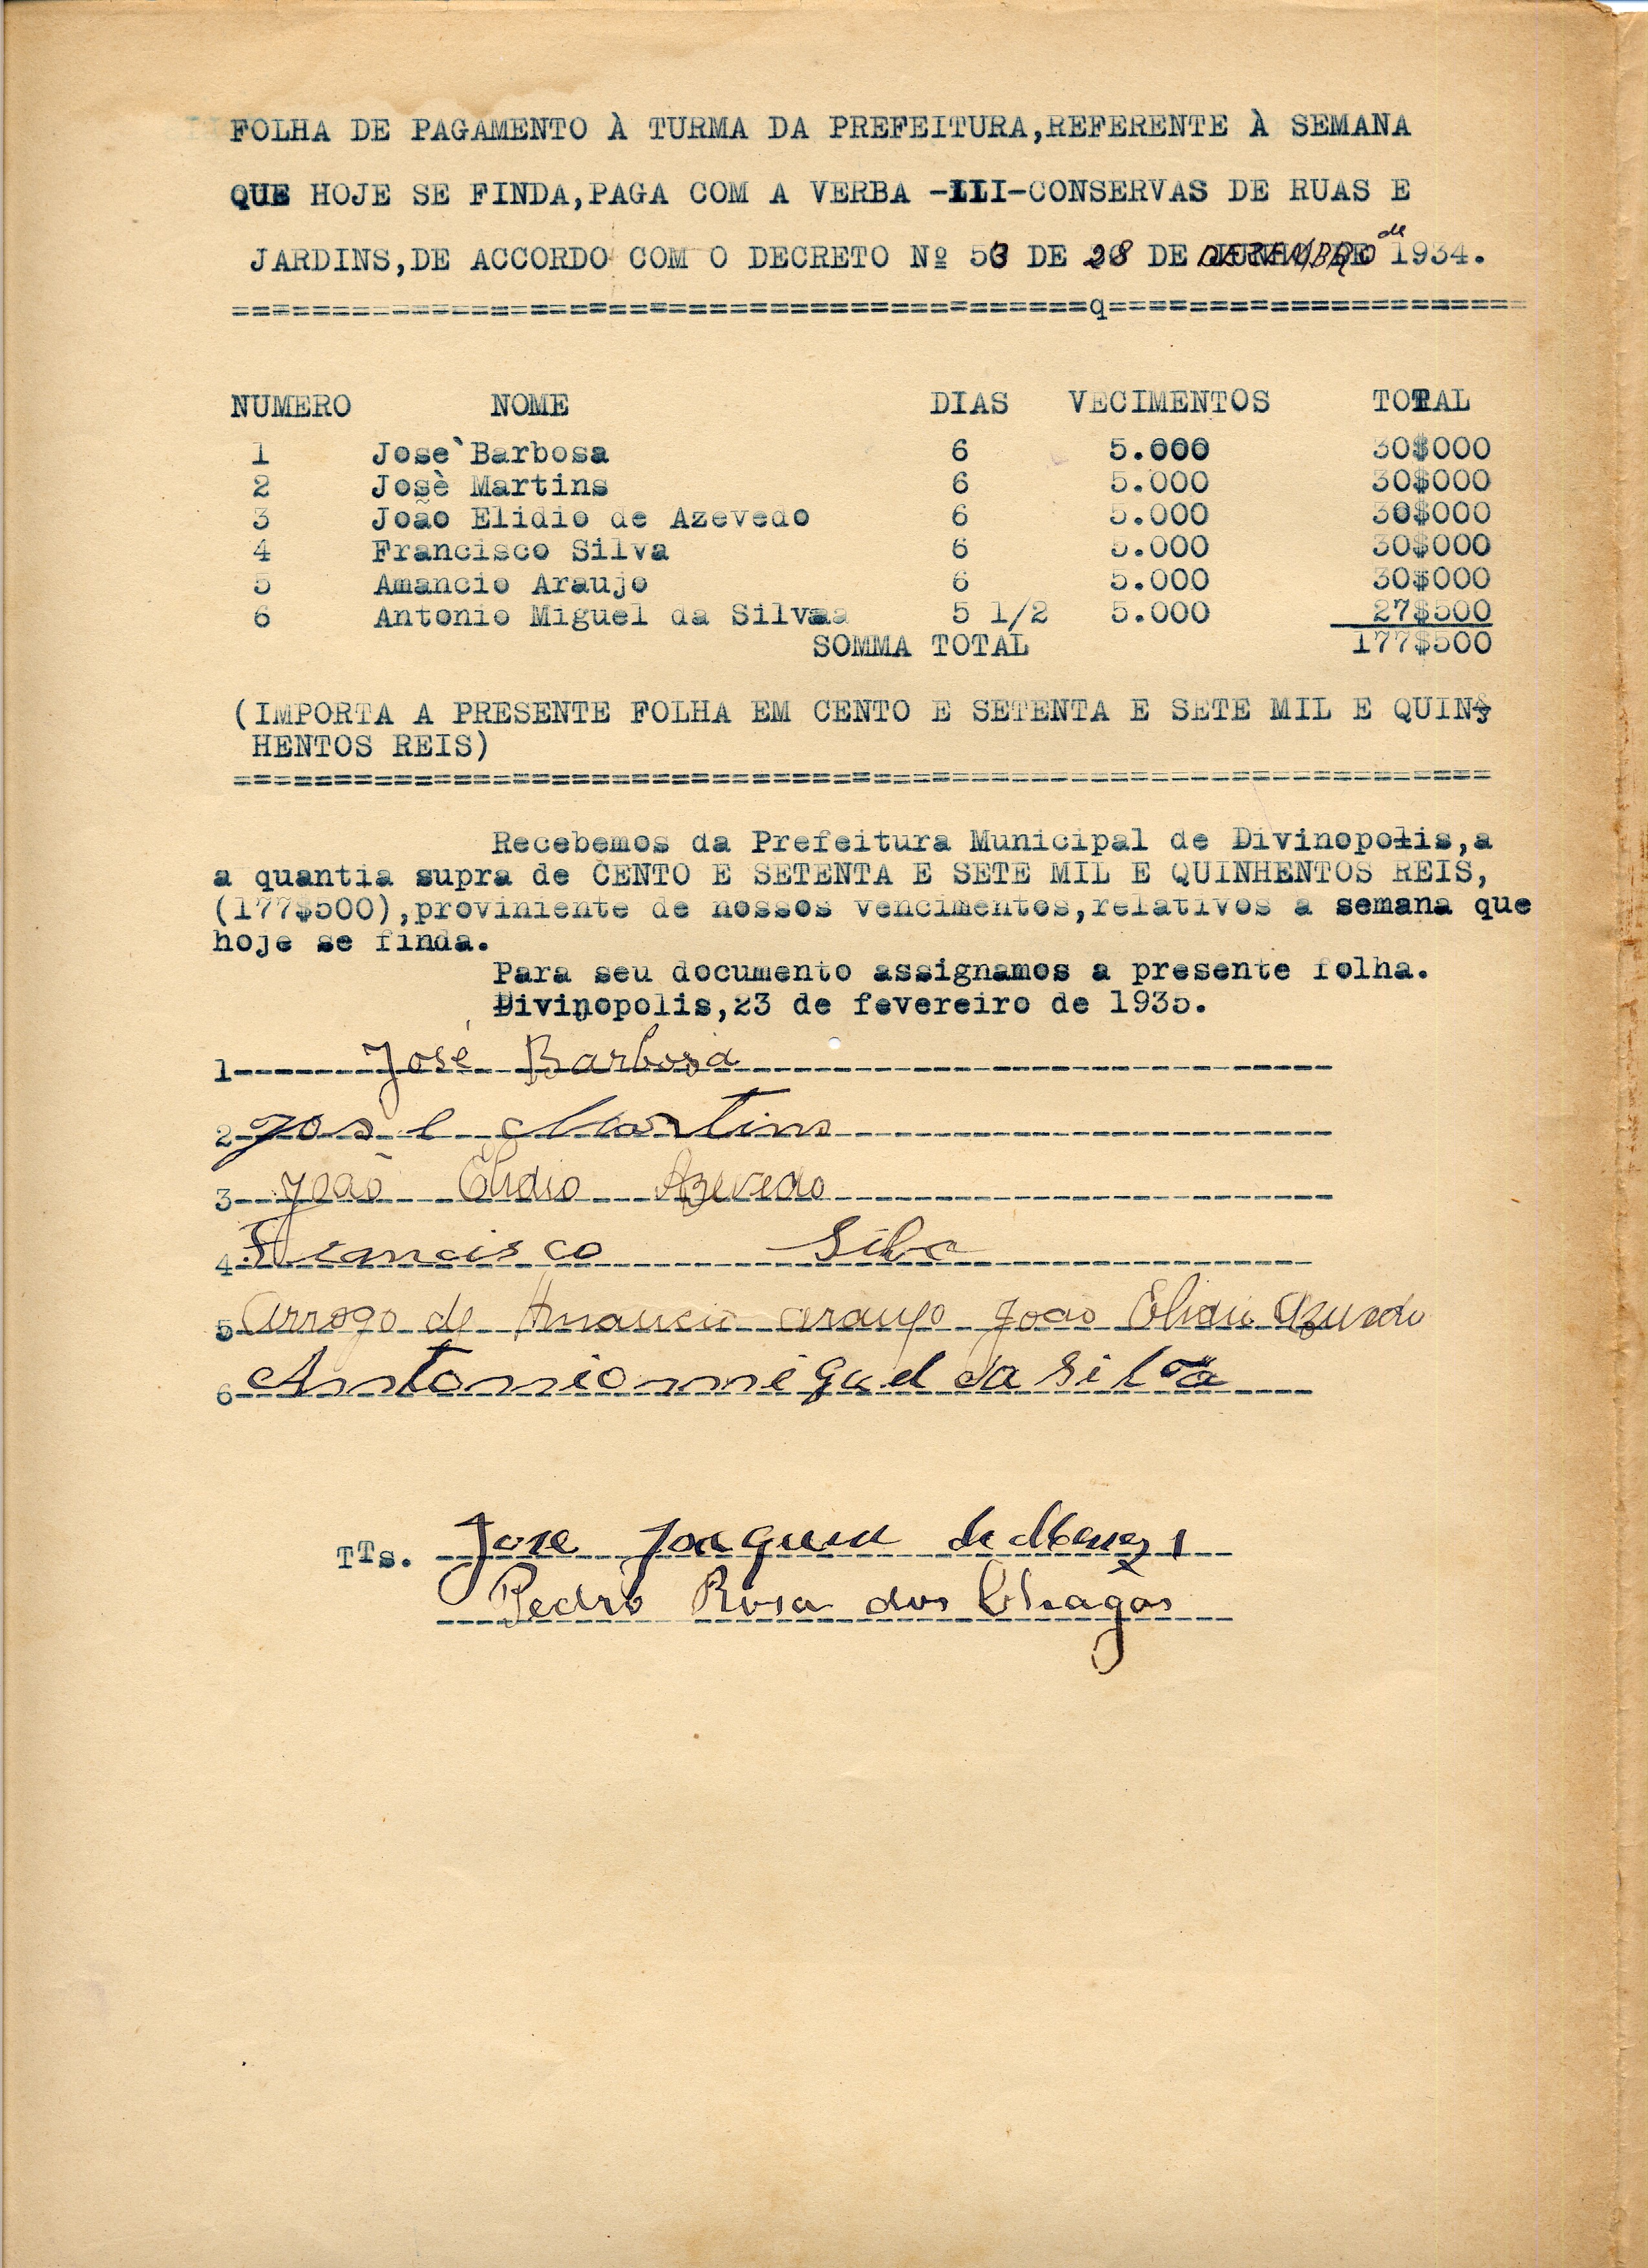 FOLHA DE PAGAMENTO À TURMA DA PREFEITURA,REFERENTE À SEMANA
QUE HOJE SE FINDA,PAGA COM A VERBA -III-CONSERVAS DE RUAS E
JARDINS,DE ACCORDO COM O DECRETO Nº 53 DE 28 DE DEZEMBRO de 1934.
==========================================q=====================
NUMERO NOME DIAS VECIMENTOS TOTAL
1 Jose`Barbosa 6 5.000 30$000
2 Josè Martins 6 5.000 30$000
3 João Elidio de Azevedo 6 5.000 30$000
4 Francisco Silva 6 5.000 30$000
5 Amancio Araujo 6 5.000 30$000
6 Antonio Miguel da Silvaa 5 1/2 5.000 27$500
SOMMA TOTAL 177$500
(IMPORTA A PRESENTE FOLHA EM CENTO E SETENTA E SETE MIL E QUIN-
HENTOS REIS)
==============================================================
Recebemos da Prefeitura Municipal de Divinopolis,a
a quantia supra de CENTO E SETENTA E SETE MIL E QUINHENTOS REIS,
(177$500),proviniente de nossos vencimentos,relativos a semana que
hoje se finda.
Para seu documento assignamos a presente folha.
Divinopolis,23 de fevereiro de 1935.
1 José Barbosa
2 Jose Martins
3 João Elidio Azevedo
4 Francisco Silva
5 Arrogo de Amancio Araujo João Elidio Azevedo
6 Antonio miguel da Silva
TTs. Jose Joaquim de
Pedro Rosa das Chagas